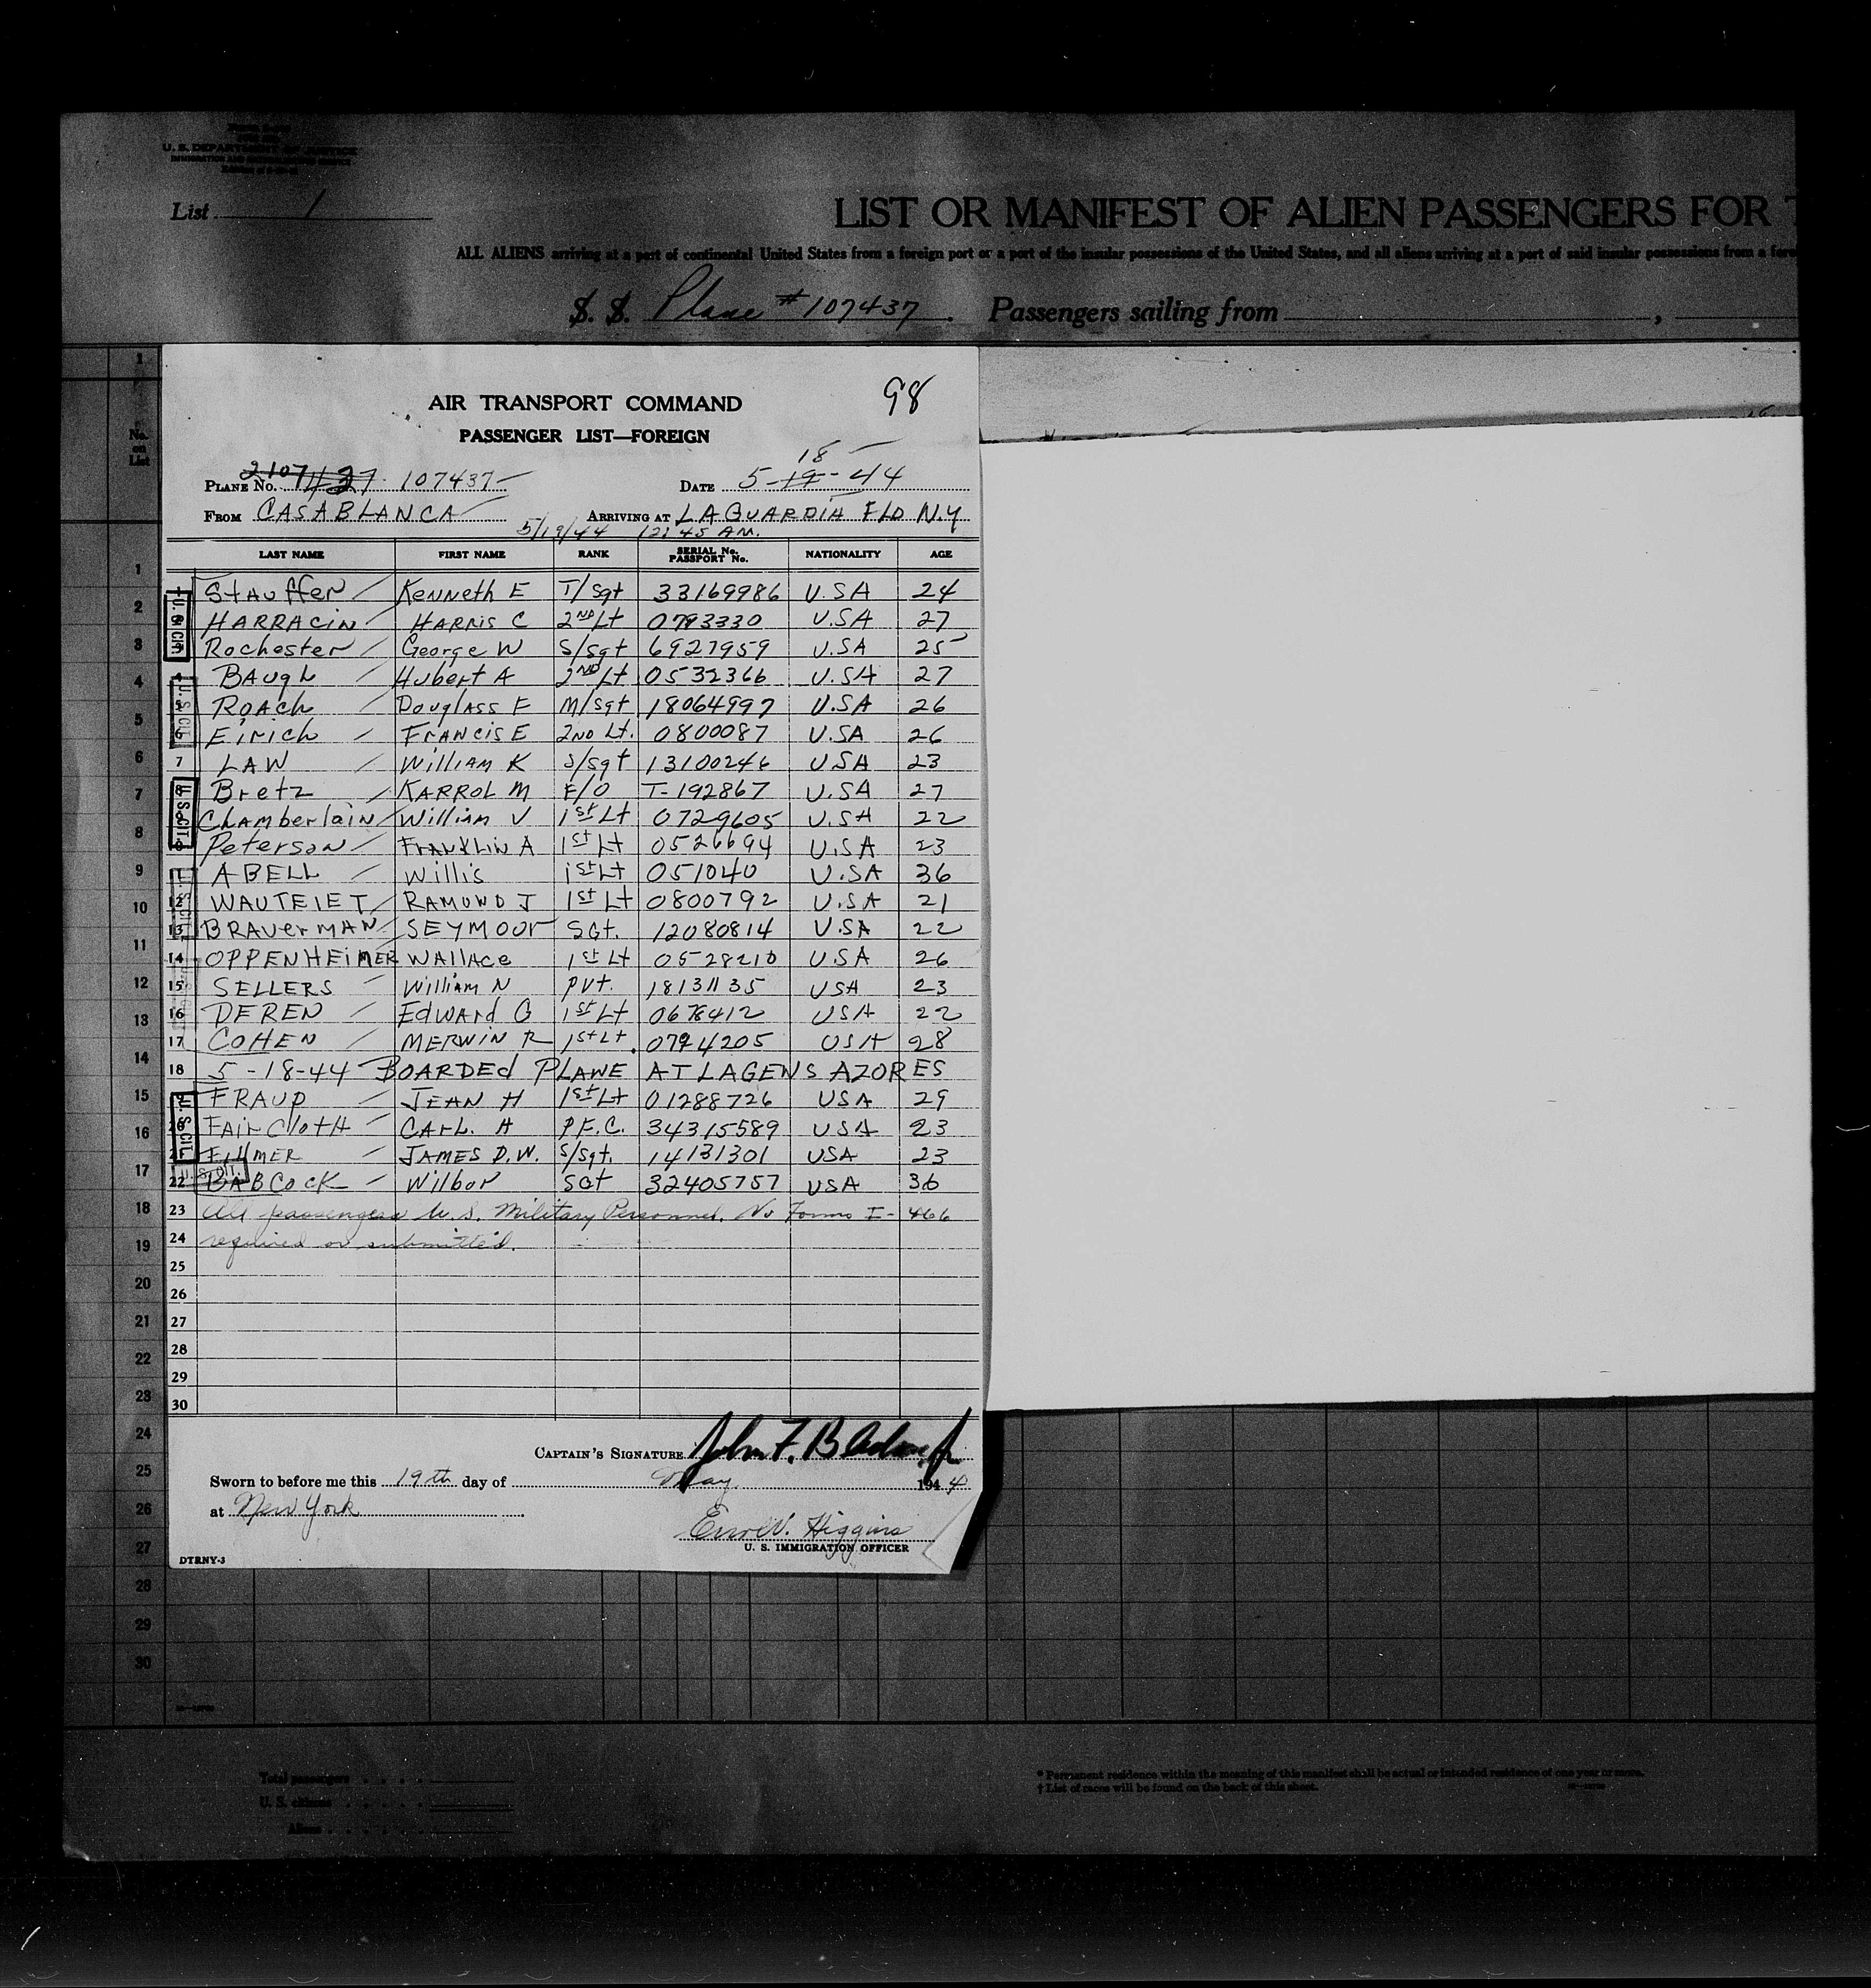 U. S. DEPARTMENT OF JUSTICE
IMMIGRATION AND NATURALIZATION SERVICE
List 1
LIST OR MANIFEST OF ALIEN PASSENGERS FOR
ALL ALIENS arriving at a port of continental United States from a foreign port or a port of the insular possessions of the United States, and all aliens arriving at a port of said insular possessions from a
S. S. Plane # 107437. Passengers sailing from ,
AIR TRANSPORT COMMAND 98
PASSENGER LIST—FOREIGN
18
PLANE No. 107437 DATE 5-19-44
FROM CASABLANCA ARRIVING AT LAGUARDIA FLD N.Y
5/19/44 12:45 AM.
LAST NAME FIRST NAME RANK SERIAL No. PASSPORT No. NATIONALITY AGE
Stauffer Kenneth E T/Sgt 33169986 U.SA 24
HARRACIN HARRIS C 2ND Lt 0793330 U.SA 27
Rochester George W S/Sgt 6927959 U.SA 25
BAugh Hubert A 2ND Lt 0532366 U.SA 27
ROAch DouglASS E M/Sgt 18064997 U.SA 26
Eirich FRANCIS E 2ND Lt. 0800087 U.SA 26
7 LAW William K S/Sgt 13100246 USA 23
8 Bretz KARROL M F/O T-192867 U.SA 27
Chamberlain William V 1st Lt 0729605 U.SA 22
Peterson FRANKLIN A 1st Lt 0526694 U.SA 23
ABELL Willis 1st Lt 051040 U.SA 36
12 WAUTELET RAMOND J 1st Lt 0800792 U.SA 21
13 BRAVERMAN SEYMOUR SGt. 12080814 U.SA 22
14 OPPENHEIMER WAllace 1st Lt 0528210 USA 26
15 SELLERS William N Pvt. 18131135 USA 23
16 DEREN EdWARd G 1st Lt 0678412 USA 22
17 COHEN MERWIN R 1st Lt. 0794205 USA 28
18 5-18-44 BOARDEd PLANE AT LAGENS AZORES
FRAUP JEAN H 1st Lt 01288726 USA 29
FAirCloth CArL. H P.F.C. 34315589 USA 23
FillMER JAMES D.W. S/Sgt. 14131301 USA 23
22 BABCOCK Wilbor SGt 32405757 USA 36
23 All passengers U.S. Military Personnel. No Forms I-466
24 required or submitted.
25
26
27
28
29
30
CAPTAIN'S SIGNATURE John F.
Sworn to before me this 19th day of May 1944
at New York
Higgins
U. S. IMMIGRATION OFFICER
DTRNY-3
Total passengers
U. S. citizens
Aliens
* Permanent residence within the meaning of this manifest shall be actual or intended residence of one year or more.
† List of races will be found on the back of this sheet.